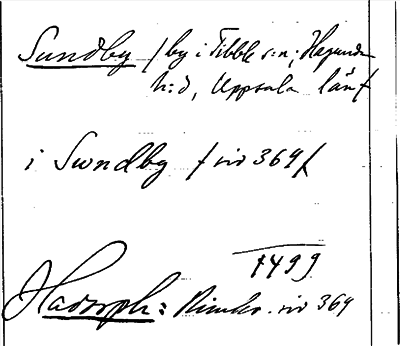 Sundby / by i Tibble s:n, Hagunda
h:d, Uppsala län /
i Swndby / sid 369 /
1499
Hadorph: Rimkr. sid 369